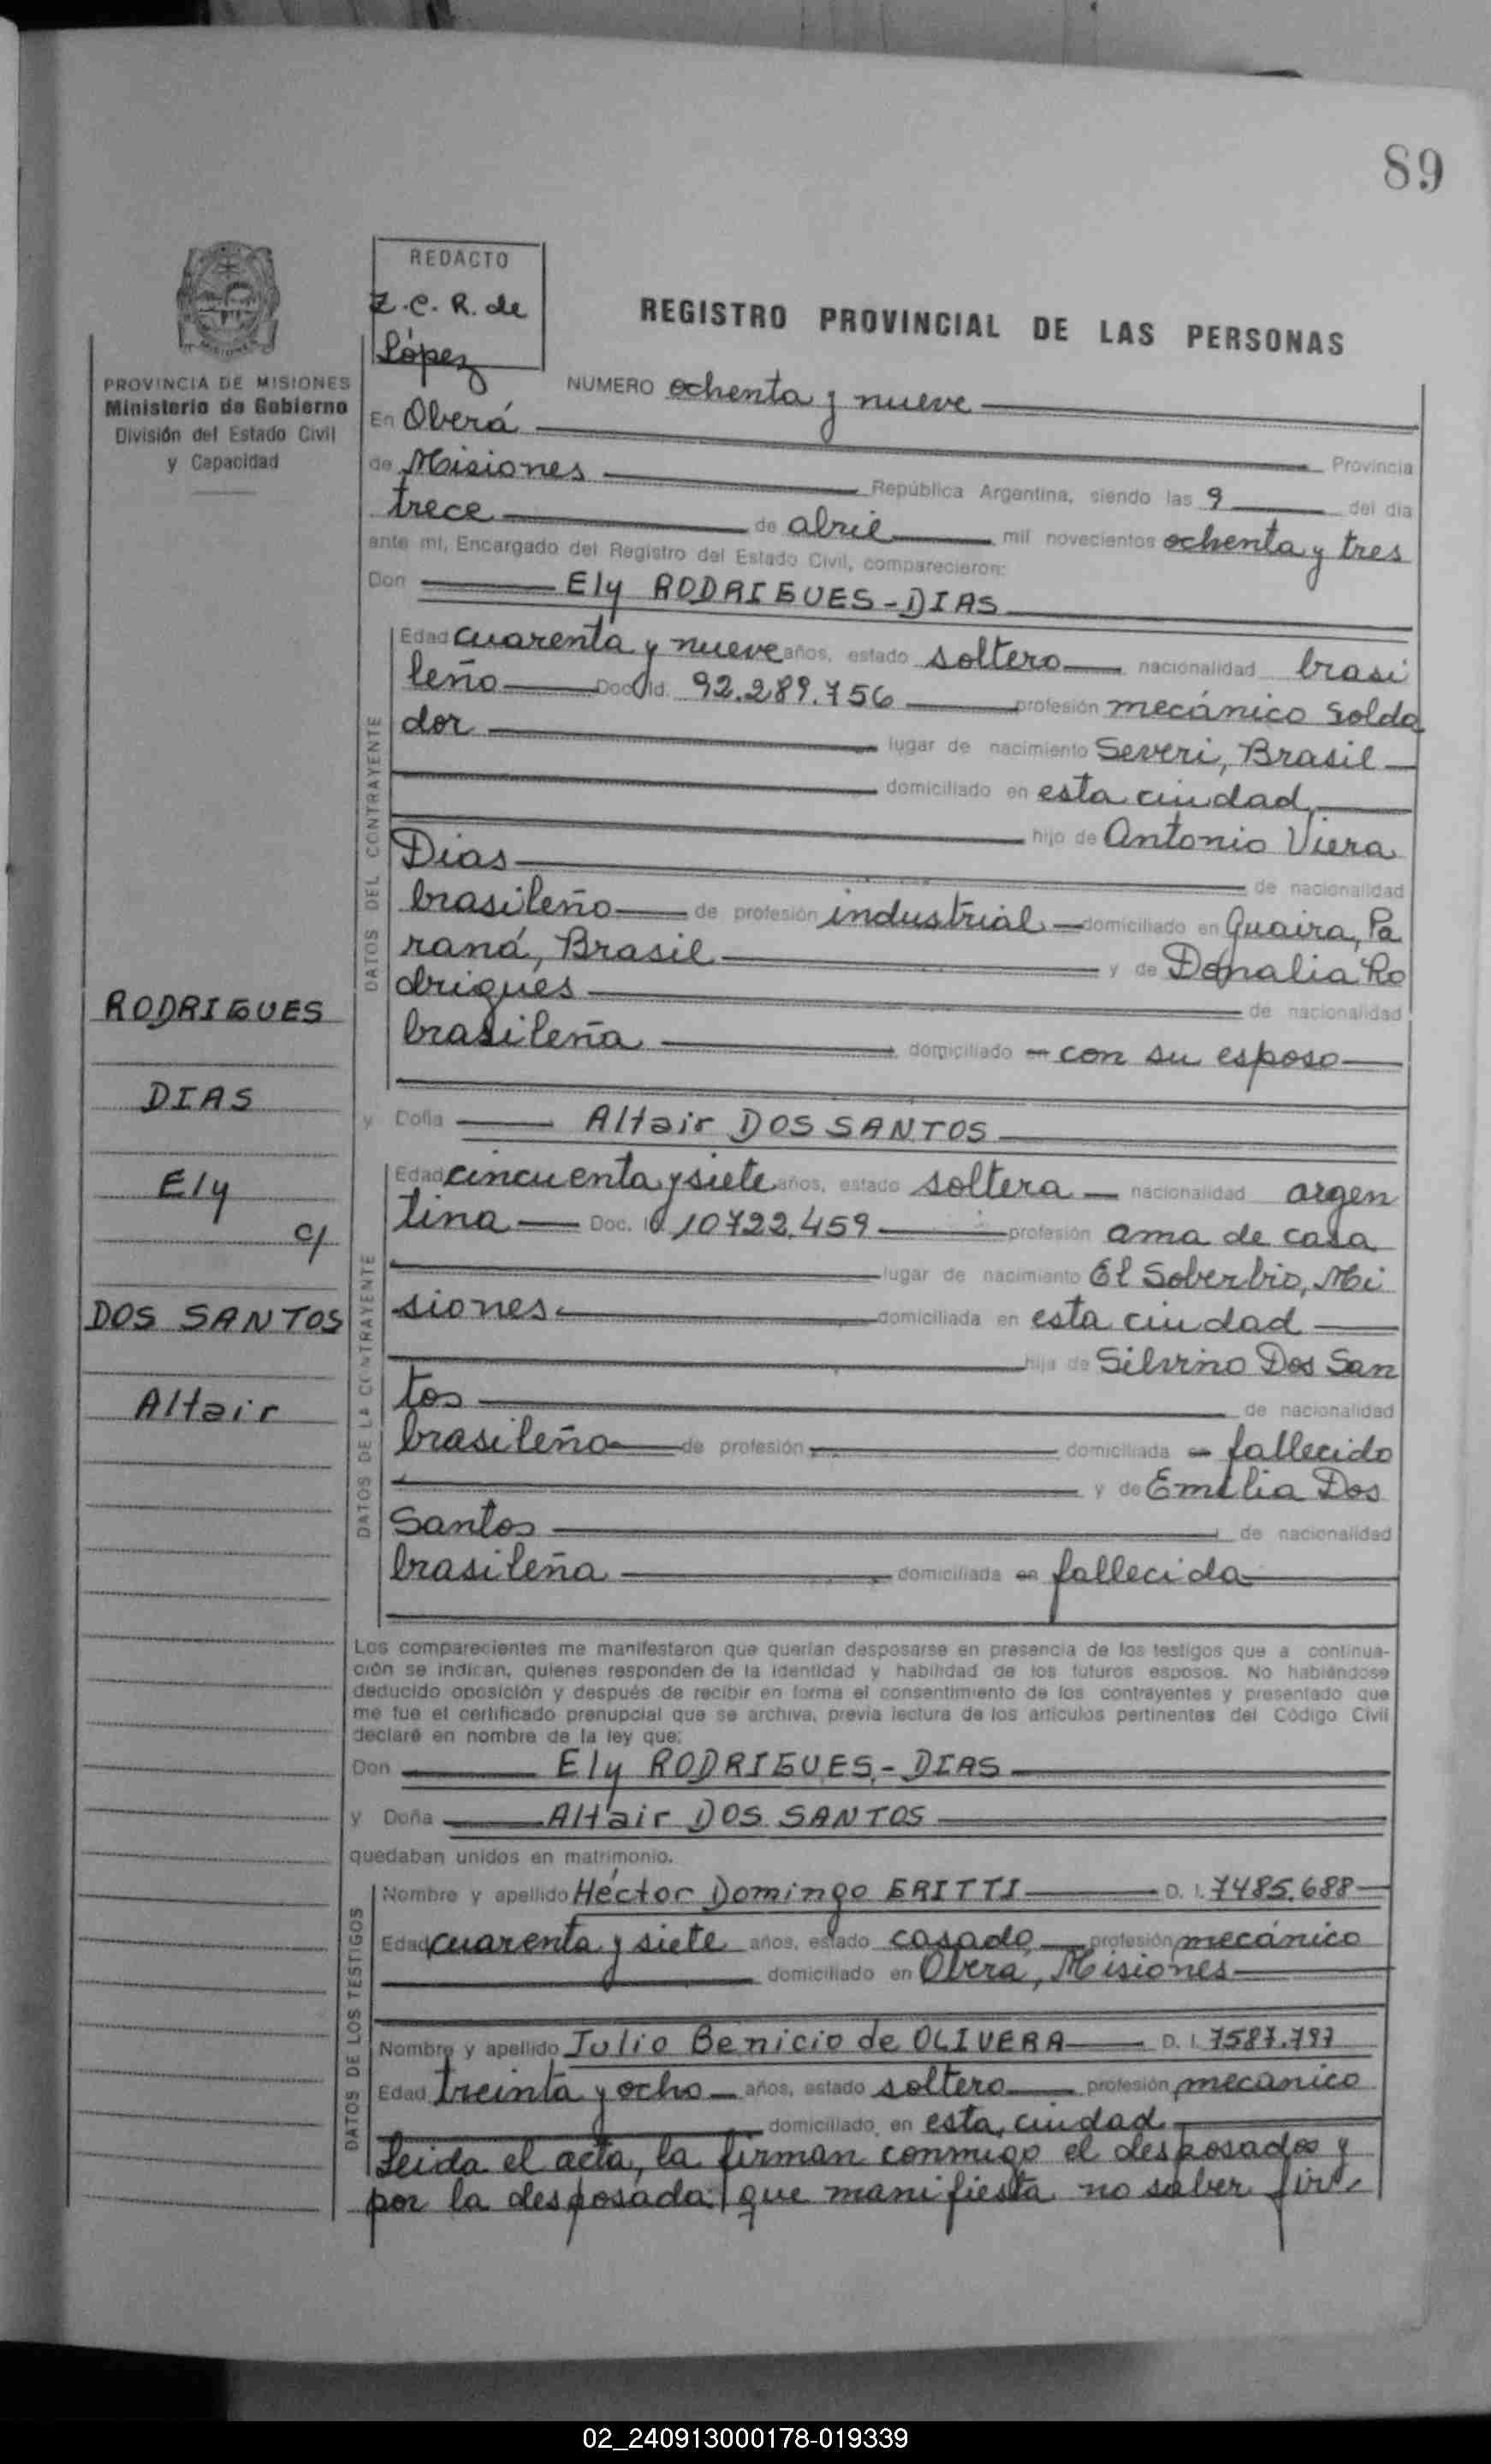 89
REDACTO
Z.C.R. de
López
REGISTRO PROVINCIAL DE LAS PERSONAS
PROVINCIA DE MISIONES
Ministerio de Gobierno
División del Estado Civil
y Capacidad
NUMERO ochenta y nueve
En Oberá Provincia
de Misiones República Argentina, siendo las 9 del día
trece de abril mil novecientos ochenta y tres
ante mí, Encargado del Registro del Estado Civil, comparecieron:
Don Ely RODRIGUES-DIAS
DATOS DEL CONTRAYENTE
Edad cuarenta y nueve años, estado soltero nacionalidad brasi
leño Doc. Id. 92.289.756 profesión mecánico solda
dor lugar de nacimiento Severi, Brasil
domiciliado en esta ciudad
hijo de Antonio Viera
Dias de nacionalidad
brasileño de profesión industrial domiciliado en Guaira, Pa
raná, Brasil y de Donalia Ro
drigues de nacionalidad
brasileña domiciliado en con su esposo
y Doña Altair DOS SANTOS
DATOS DE LA CONTRAYENTE
Edad cincuenta y siete años, estado soltera nacionalidad argen
tina Doc. Id 10722.459 profesión ama de casa
lugar de nacimiento El Soberbio, Mi
siones domiciliada en esta ciudad
hija de Silvino Dos San
tos de nacionalidad
brasileño de profesión domiciliada en fallecido
y de Emilia Dos
Santos de nacionalidad
brasileña domiciliada en fallecida
RODRIGUES
DIAS
Ely
c/
DOS SANTOS
Altair
Los comparecientes me manifestaron que querían desposarse en presencia de los testigos que a continua-
ción se indican, quienes responden de la identidad y habilidad de los futuros esposos. No habiéndose
deducido oposición y después de recibir en forma el consentimiento de los contrayentes y presentado que
me fue el certificado prenupcial que se archiva, previa lectura de los artículos pertinentes del Código Civil
declaré en nombre de la ley que:
Don Ely RODRIGUES-DIAS
y Doña Altair DOS SANTOS
quedaban unidos en matrimonio.
DATOS DE LOS TESTIGOS
Nombre y apellido Héctor Domingo ERITTI D. I. 7485.688
Edad cuarenta y siete años, estado casado profesión mecánico
domiciliado en Obera, Misiones
Nombre y apellido Julio Benicio de OLIVERA D. I. 7587.797
Edad treinta y ocho años, estado soltero profesión mecanico
domiciliado en esta ciudad
Leida el acta, la firman conmigo el desposados y
por la desposada que manifiesta no saber fir
02_240913000178-019339